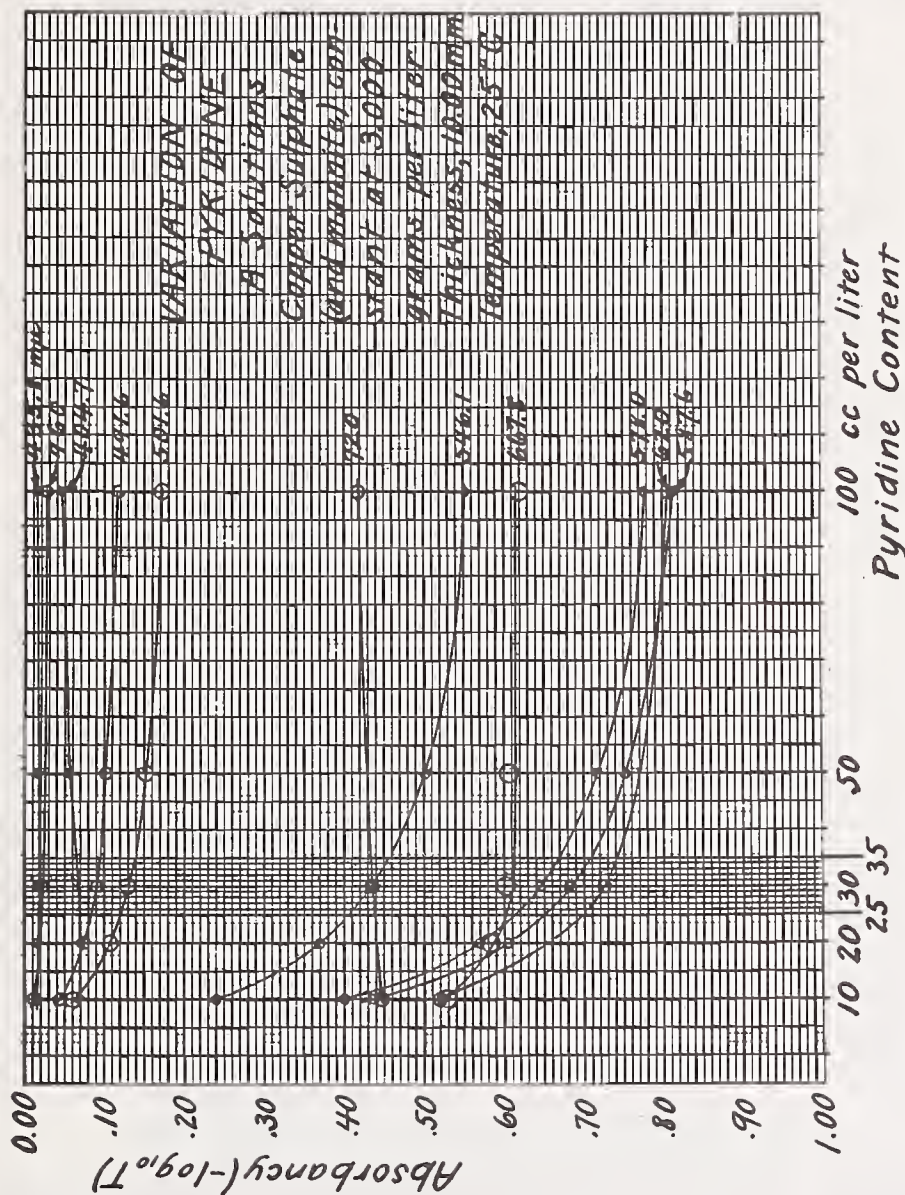 VARIATION OF
PYRIDINE
A Solutions
Copper Sulphate
(and mannite) con-
stant at 3.000
grams per liter
Thickness, 10.00 mm
Temperature, 25°C
435.8 mµ
460
404.7
491.6
501.6
720
546.1
667.8
578.0
620
587.6
0.00
.10
.20
.30
.40
.50
.60
.70
.80
.90
1.00
Absorbancy (-log₁₀T)
10 20 30 50 100 cc per liter
25 35
Pyridine Content